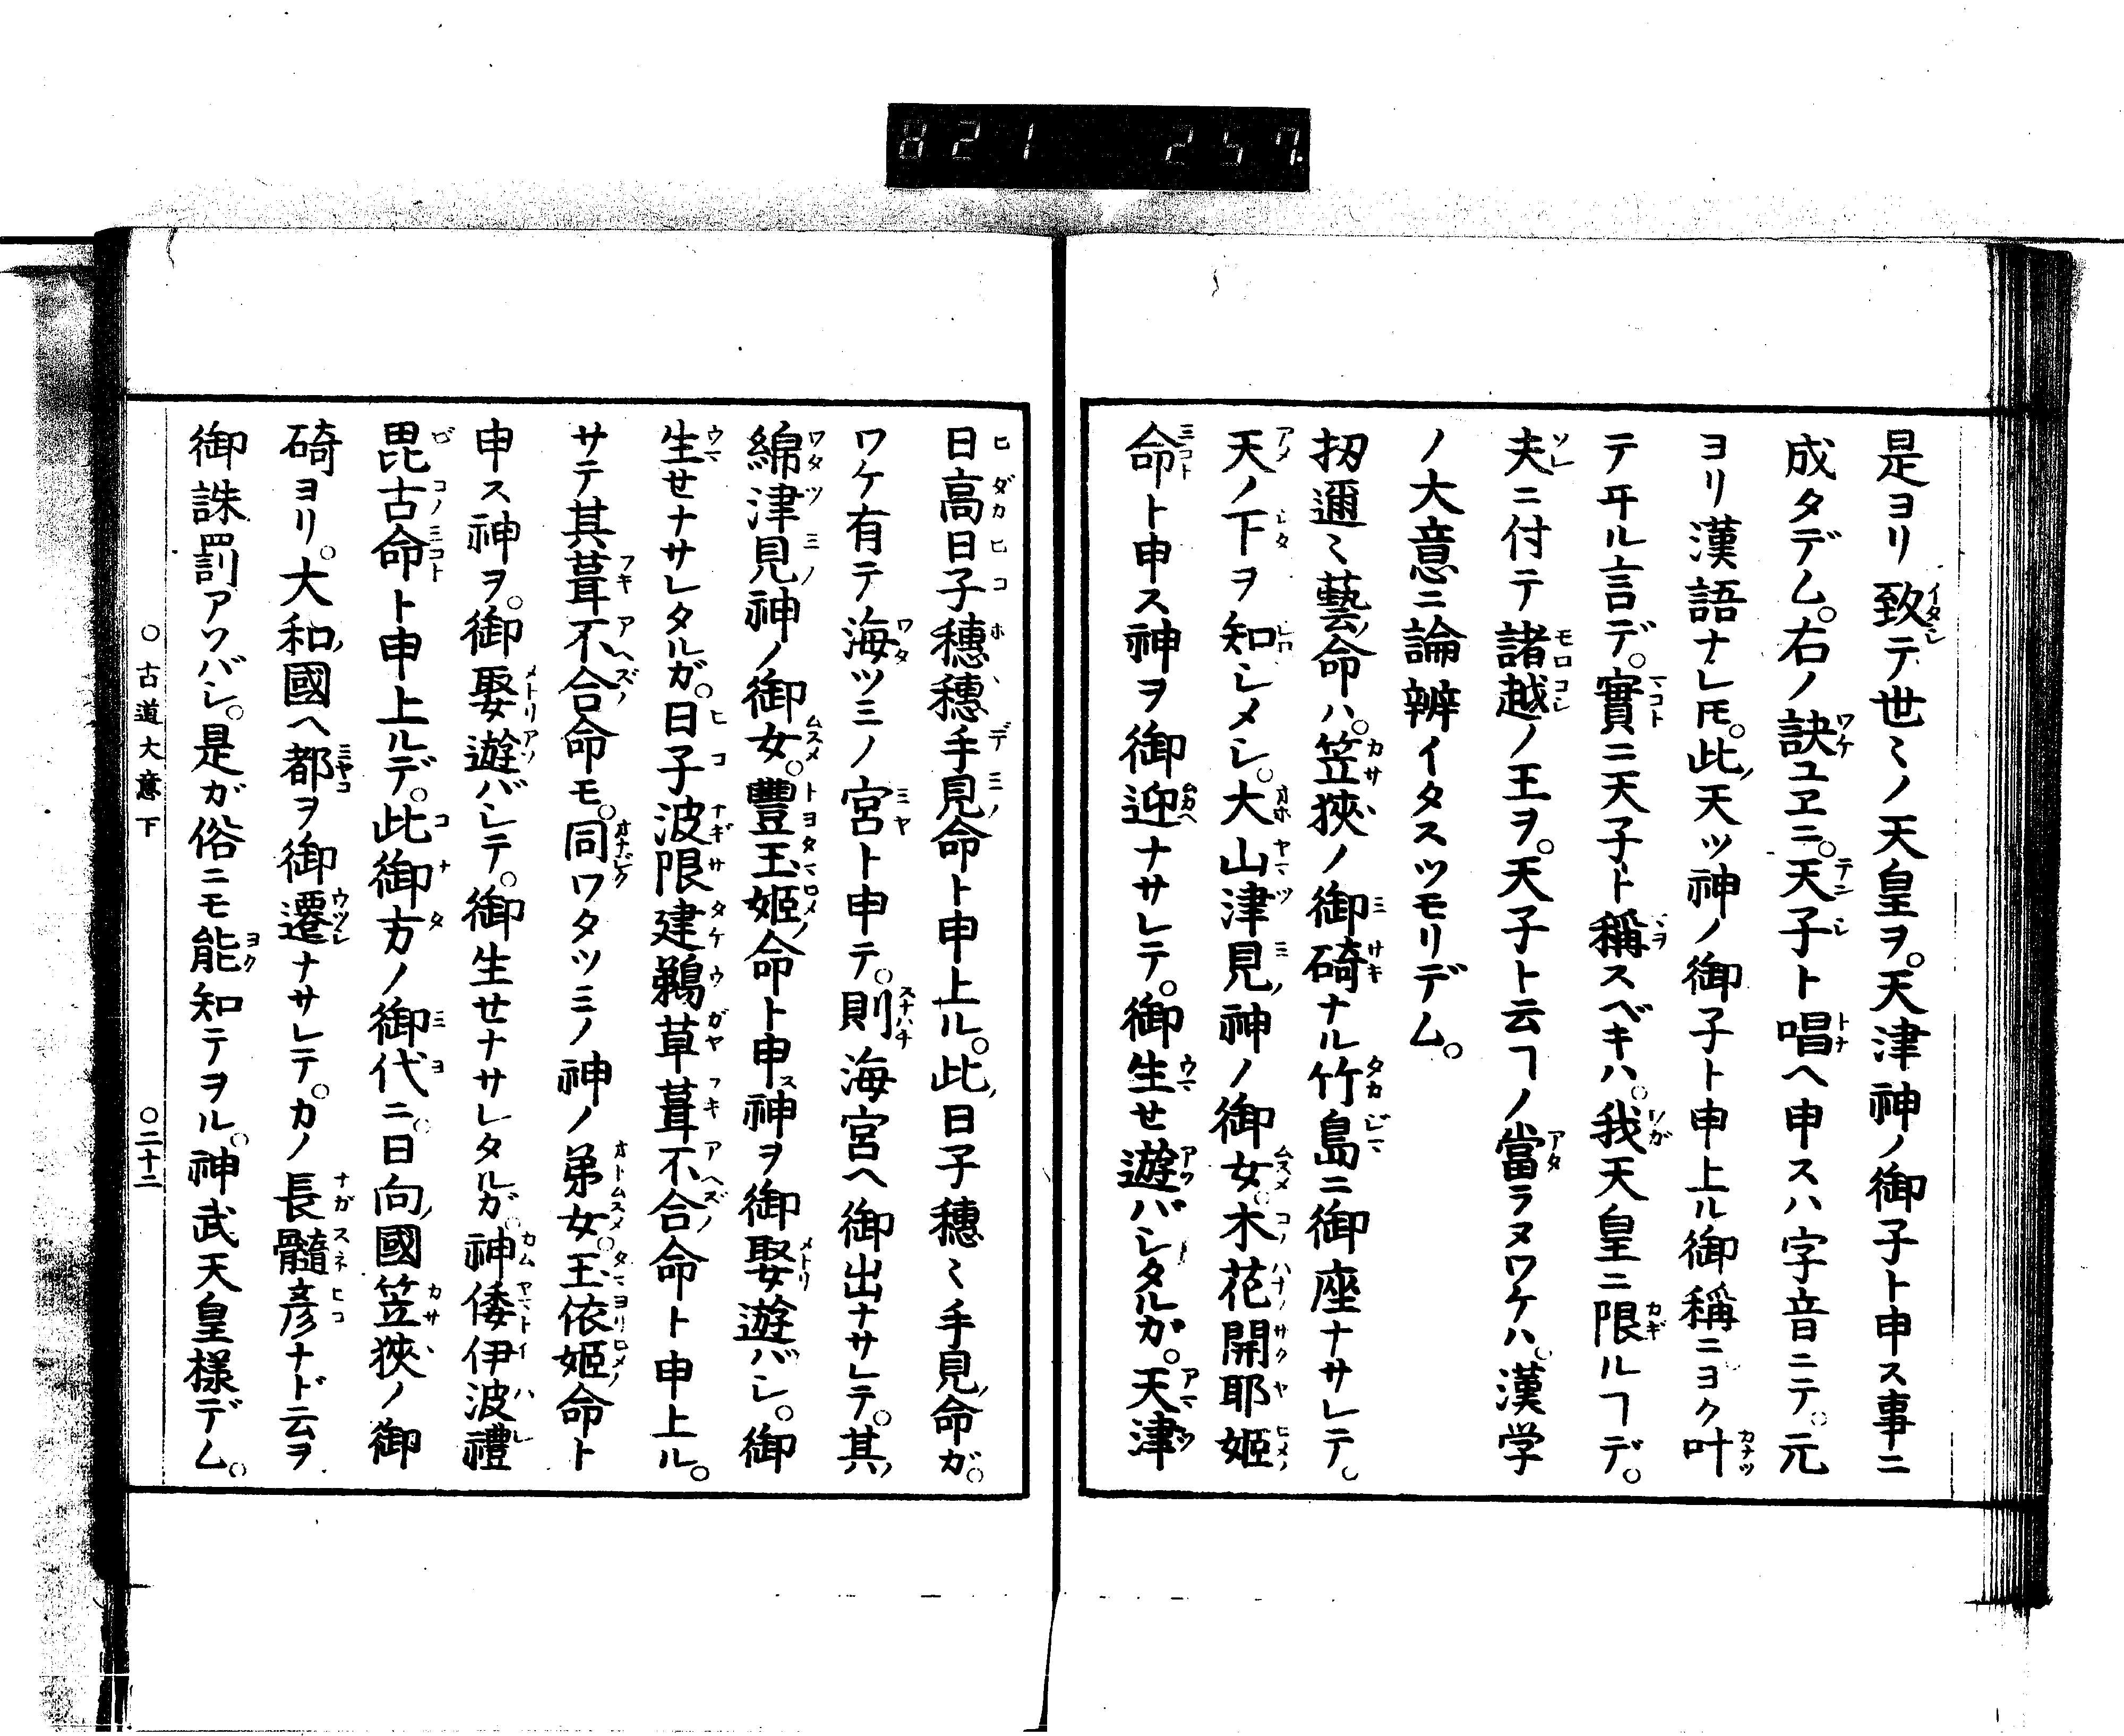 821 257.
是ヨリ致テ世〻ノ天皇ヲ。天津神ノ御子ト申ス事ニ
成タデム。右ノ訣ユヱニ。天子ト唱ヘ申スハ字音ニテ。元
ヨリ漢語ナレ𪜈。此ノ天ツ神ノ御子ト申上ル御稱ニヨク叶
テヰル言デ。實ニ天子ト稱スベキハ。我天皇ニ限ルヿデ。
夫ニ付テ諸越ノ王ヲ。天子ト云ヿノ當ラヌワケハ。漢学
ノ大意ニ論辨イタスツモリデム。
扨邇〻藝ノ命ハ。笠狹ノ御碕ナル竹島ニ御座ナサレテ。
天ノ下ヲ知シメシ。大山津見ノ神ノ御女。木花開耶姫
命ト申ス神ヲ御迎ナサレテ。御生セ遊バシタルガ。天津
日高日子穗穗手見命ト申上ル。此ノ日子穗〻手見ノ命ガ。
ワケ有テ海ツミノ宮ト申テ。則海宮ヘ御出ナサレテ。其ノ
綿津見神ノ御女。豐玉姫命ト申ス神ヲ御娶遊バシ。御
生セナサレタルガ。日子波限建鵜草葺不合命ト申上ル。
サテ其葺不合命モ。同ワタツミノ神ノ弟女。玉依姫命ト
申ス神ヲ。御娶遊バシテ。御生セナサレタルガ。神倭伊波禮
毘古命ト申上ルデ。此御方ノ御代ニ。日向ノ國笠狹ノ御
碕ヨリ。大和ノ國ヘ都ヲ御遷ナサレテ。カノ長髓彦ナド云ヲ
御誅罰アソバシ。是ガ俗ニモ能知テヲル。神武天皇樣デム。
○古道大意下 ○二十二